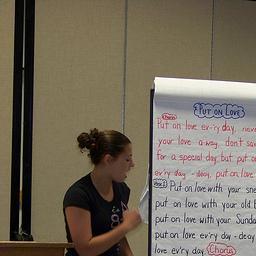 PUT ON LOVE
Chorus
Put on love ev'ry day, neve
your love a-way. don't sa
for a special day, but put o
ev'ry day - deay, put on love
Put on love with your sne
put on love with your old
put on love with your Sunda
put on love ev'ry day - deay
love ev'ry day. Chorus